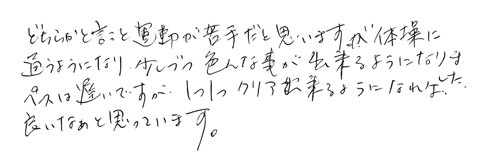 どちらかと言うと運動が苦手だと思いますが体操に
通うようになり少しづつ色んな事が出来るようになりました。
ペースは遅いですが、1つ1つクリア出来るようになれば
良いなあと思っています。